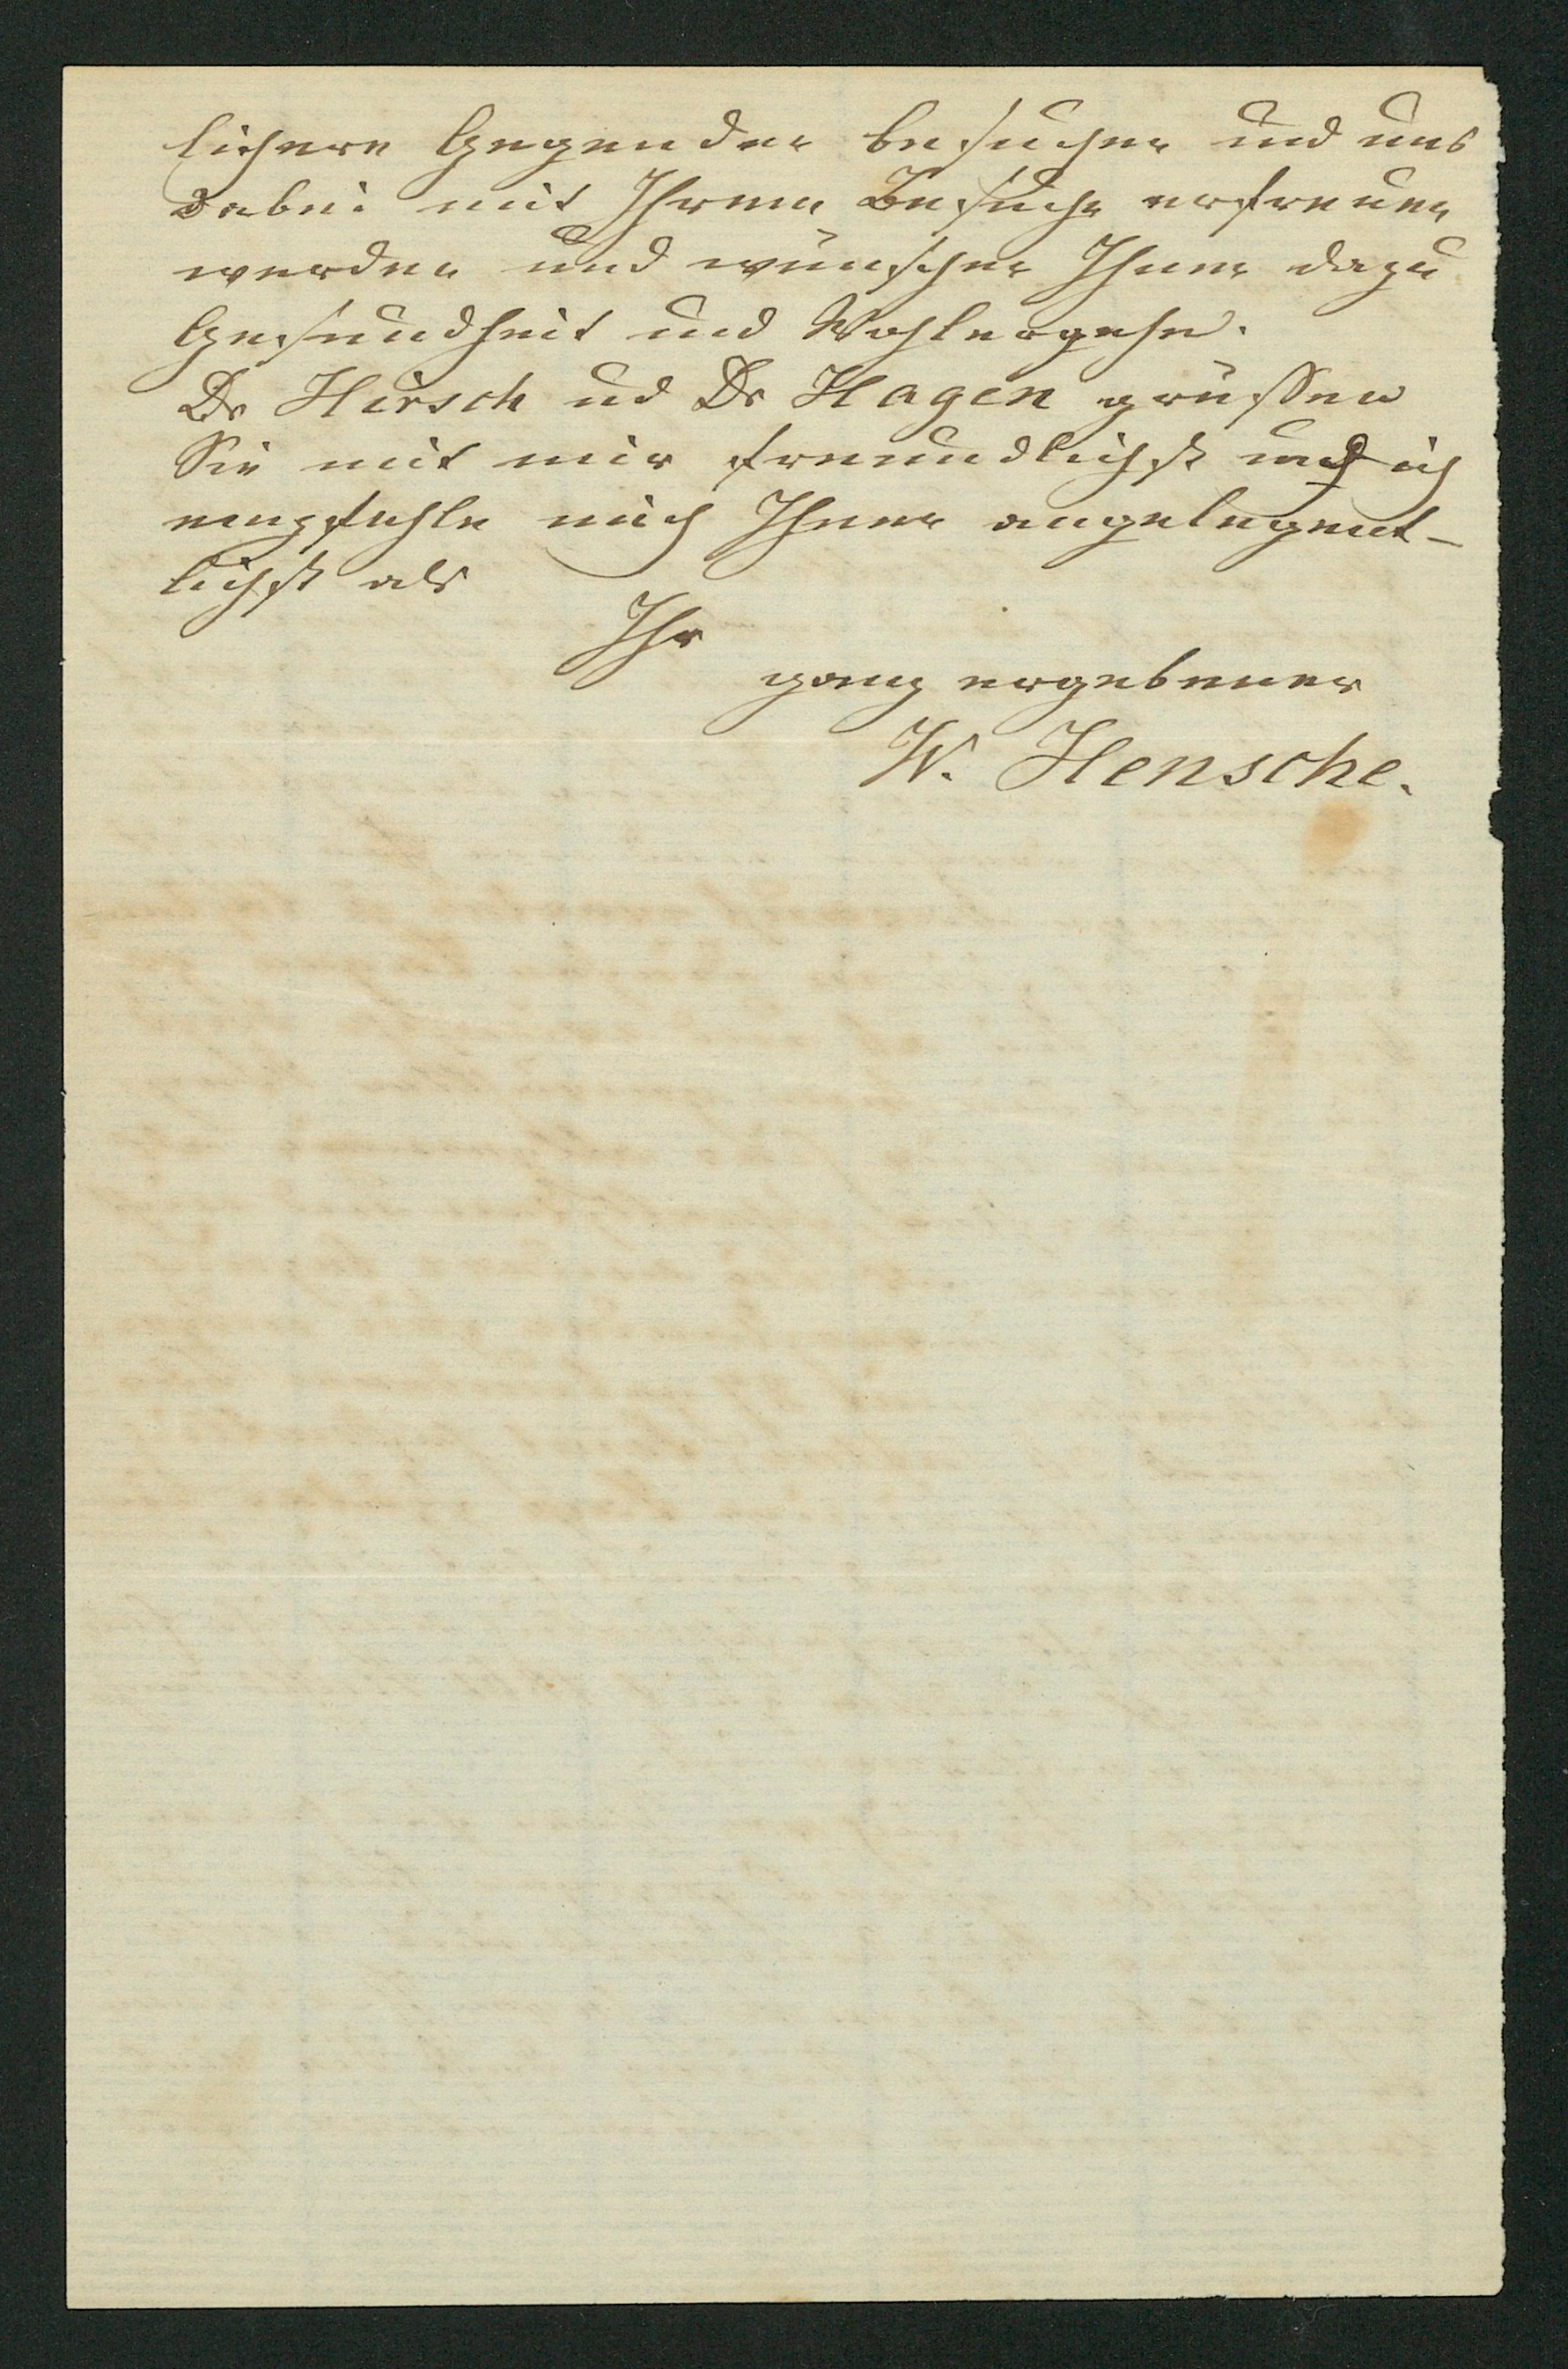 lichere Gegenden besuchen und uns
dabei mit Ihrem Besuche erfreuen
werden und wünschen Ihnen dazu
Gesundheit und Wohlergehn.
Dr Hirsch ud Dr Hagen grüssen
Sie mit mir freundlichst und ich
empfehle mich Ihnen angelegent-
lichst als
Ihr
ganz ergebener
W. Hensche.